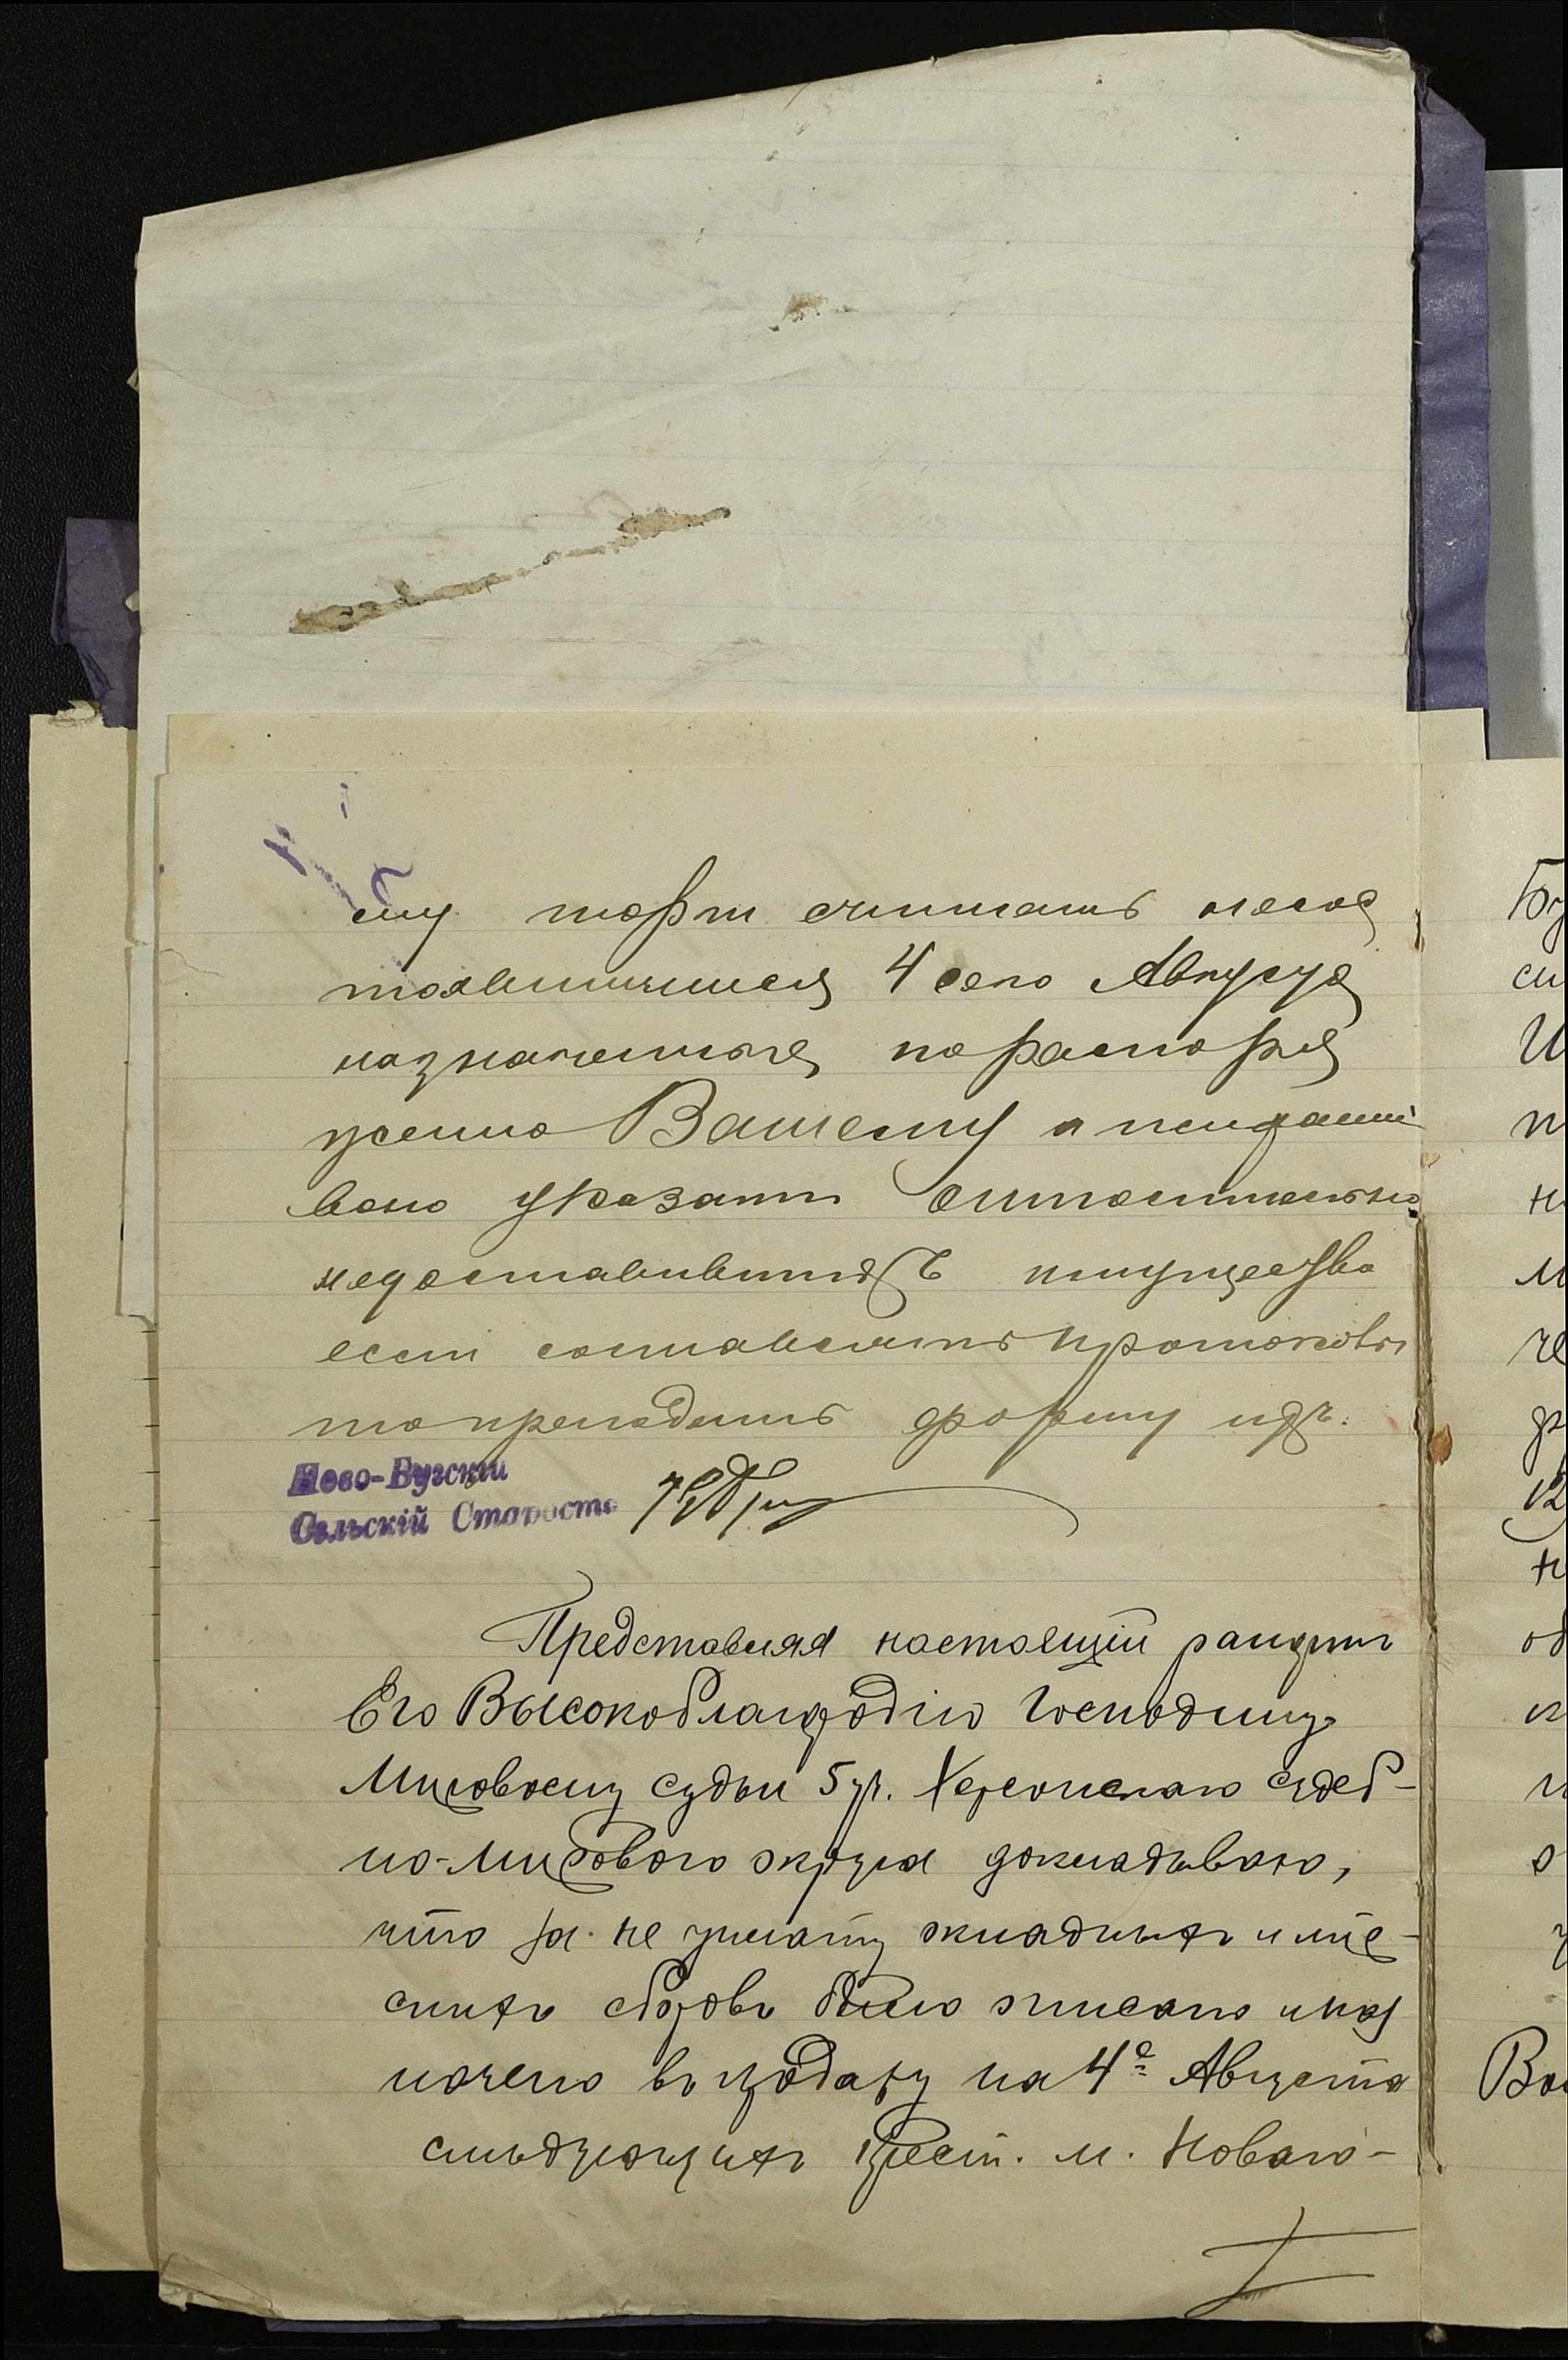 ему торги считать несос
тоявшимися 4 сего Августа
назначенные по распоря
жению Вашему и
указать относительно
недоставивших имущества
если составлять протоколы
то преподать форму их.
Ново-Бугскій
Сельскій Староста
Представляя настоящій рапортъ
Его Высокоблагородію Господину
Мировому судьи 5 уч. Херсонскаго судеб-
но-мирового округа докладываю,
что за не уплату окладныхъ и мір-
скихъ сборовъ было описано и наз
начено въ продажу на 4е Августа
слѣдующихъ крест. м. Новаго-
Бу
си
И
п
н
м
че
12
н
об
к
и
о
Во